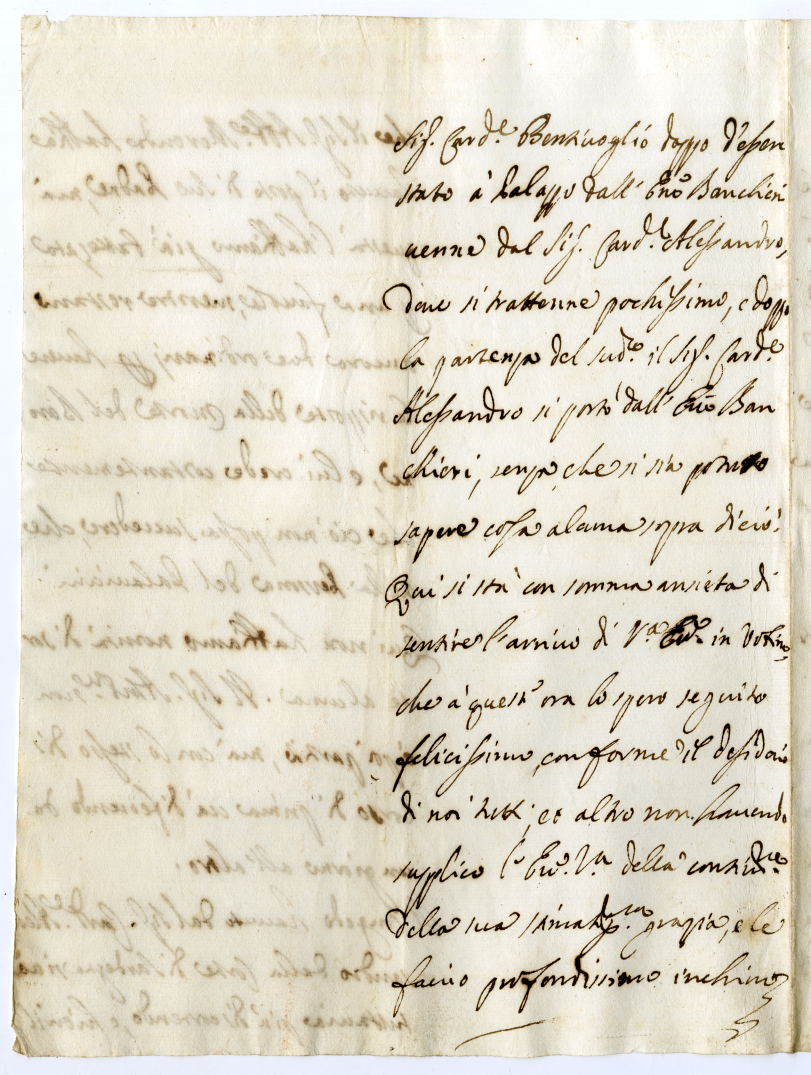 Sig.r Card.e Bentivoglio doppo d'esser
stato à Palazzo dall' Em̃o Banchieri
venne dal Sig.r Card.e Alessandro,
dove si trattenne pochissimo, e doppo
la partenza del sud.to il Sig.r Card.e
Alessandro si portò dall' Em̃o Ban
chieri, senza, che si sia potuto
sapere cosa alcuna sopra di ciò.
Qui si stà con somma ansietà di
sentire l'arrivo di V.a Em.a in
che à quest' ora lo spero seguito
felicissimo, conforme il desiderio
di noi tutti; et altro non havendo
supplico l' Em.a V.a della contin.ne
della sua grazia, e le
faccio profondissimo inchino